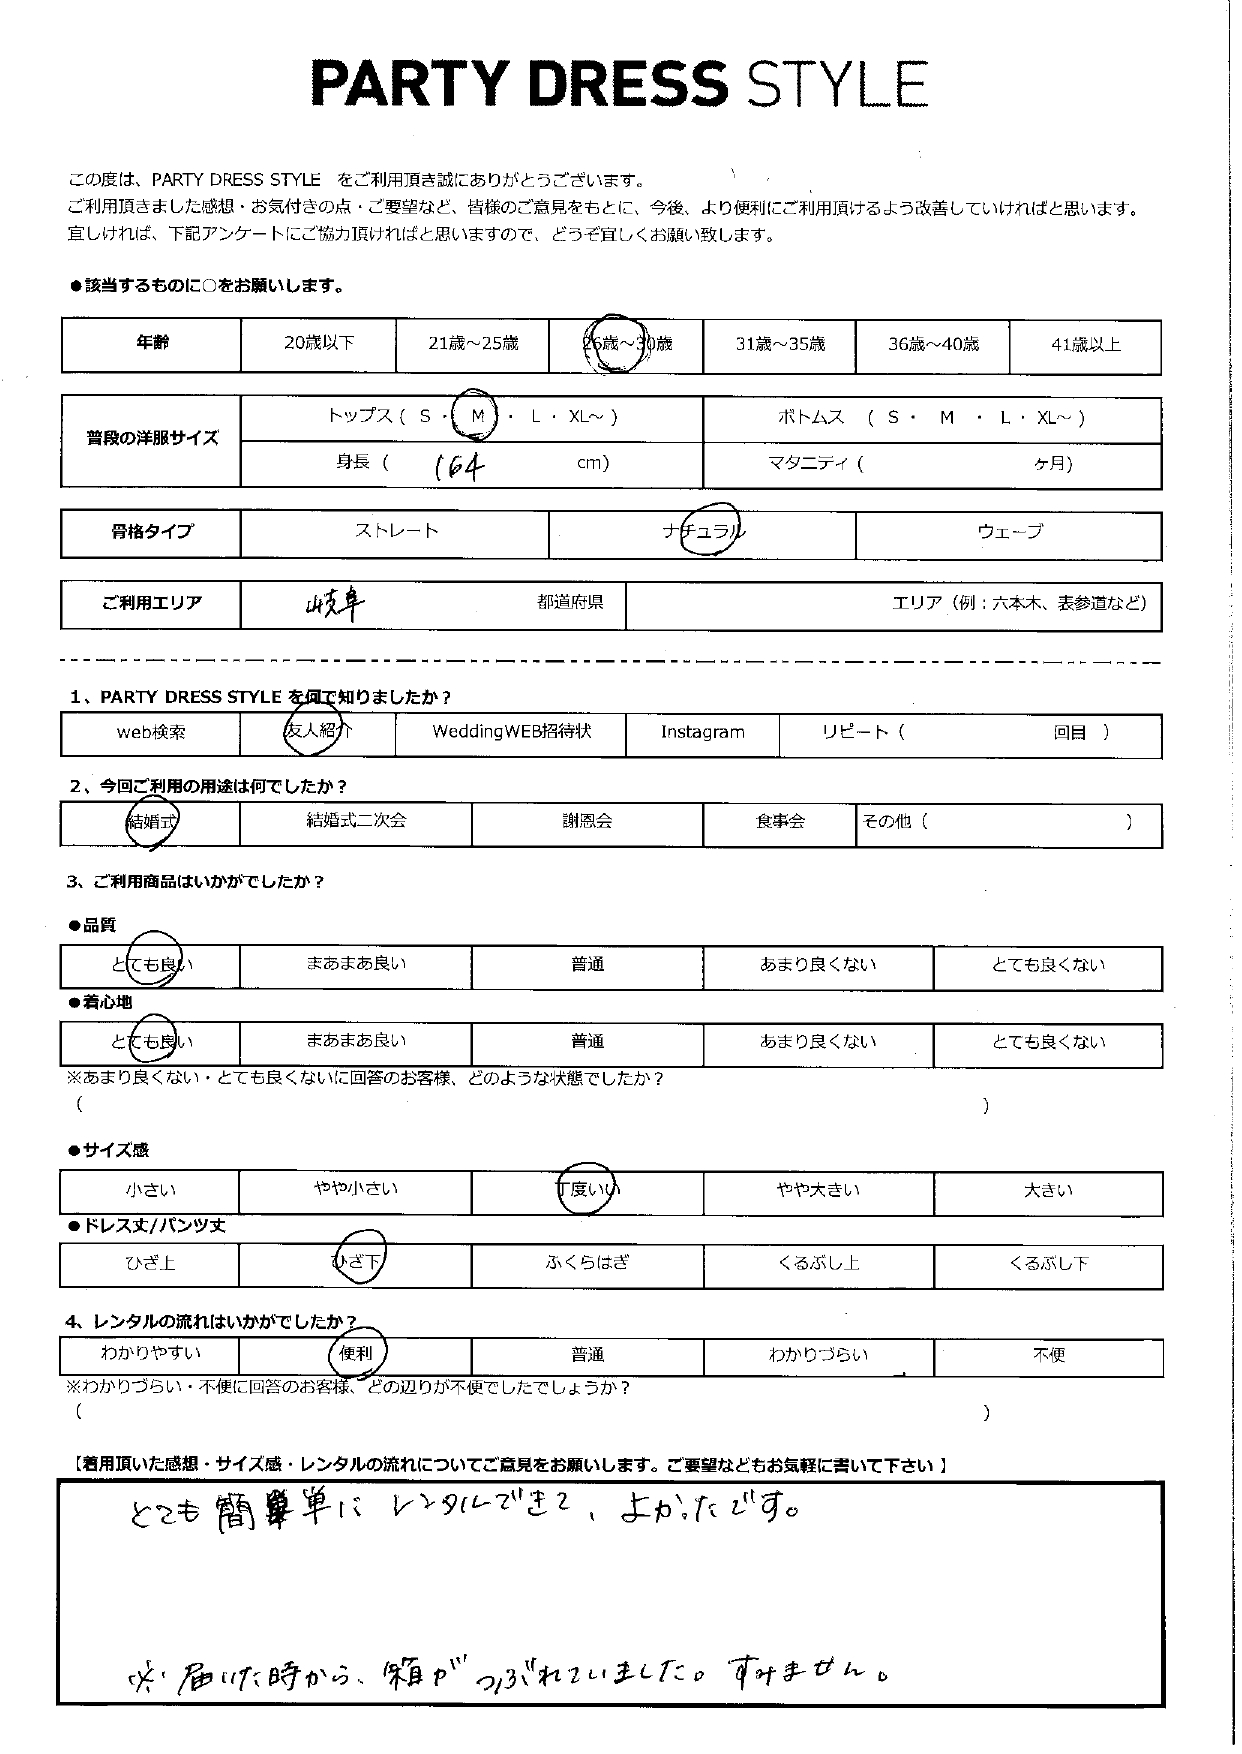 PARTY DRESS STYLE
この度は、PARTY DRESS STYLE をご利用頂き誠にありがとうございます。
ご利用頂きました感想・お気付きの点・ご要望など、皆様のご意見をもとに、今後、より便利にご利用頂けるよう改善していければと思います。
宜しければ、下記アンケートにご協力頂ければと思いますので、どうぞ宜しくお願い致します。
●該当するものに○をお願いします。
年齢 20歳以下 21歳～25歳 26歳～30歳 31歳～35歳 36歳～40歳 41歳以上
普段の洋服サイズ トップス ( S ・ M ・ L ・ XL～ ) ボトムス ( S ・ M ・ L ・ XL～ )
身長 ( 164 cm) マタニティ ( ケ月)
骨格タイプ ストレート ナチュラル ウェーブ
ご利用エリア 岐阜 都道府県 エリア（例：六本木、表参道など）
1、PARTY DRESS STYLE を何で知りましたか？
web検索 友人紹介 WeddingWEB招待状 Instagram リピート ( 回目 )
2、今回ご利用の用途は何でしたか？
結婚式 結婚式二次会 謝恩会 食事会 その他 ( )
3、ご利用商品はいかがでしたか？
●品質
とても良い まあまあ良い 普通 あまり良くない とても良くない
●着心地
とても良い まあまあ良い 普通 あまり良くない とても良くない
※あまり良くない・とても良くないに回答のお客様、どのような状態でしたか？
( )
●サイズ感
小さい やや小さい 丁度いい やや大きい 大きい
●ドレス丈/パンツ丈
ひざ上 ひざ下 ふくらはぎ くるぶし上 くるぶし下
4、レンタルの流れはいかがでしたか？
わかりやすい 便利 普通 わかりづらい 不便
※わかりづらい・不便に回答のお客様、どの辺りが不便でしたでしょうか？
( )
【着用頂いた感想・サイズ感・レンタルの流れについてご意見をお願いします。ご要望などもお気軽に書いて下さい 】
とても簡単にレンタルできて、よかったです。
※届いた時から、箱がつぶれていました。すみません。